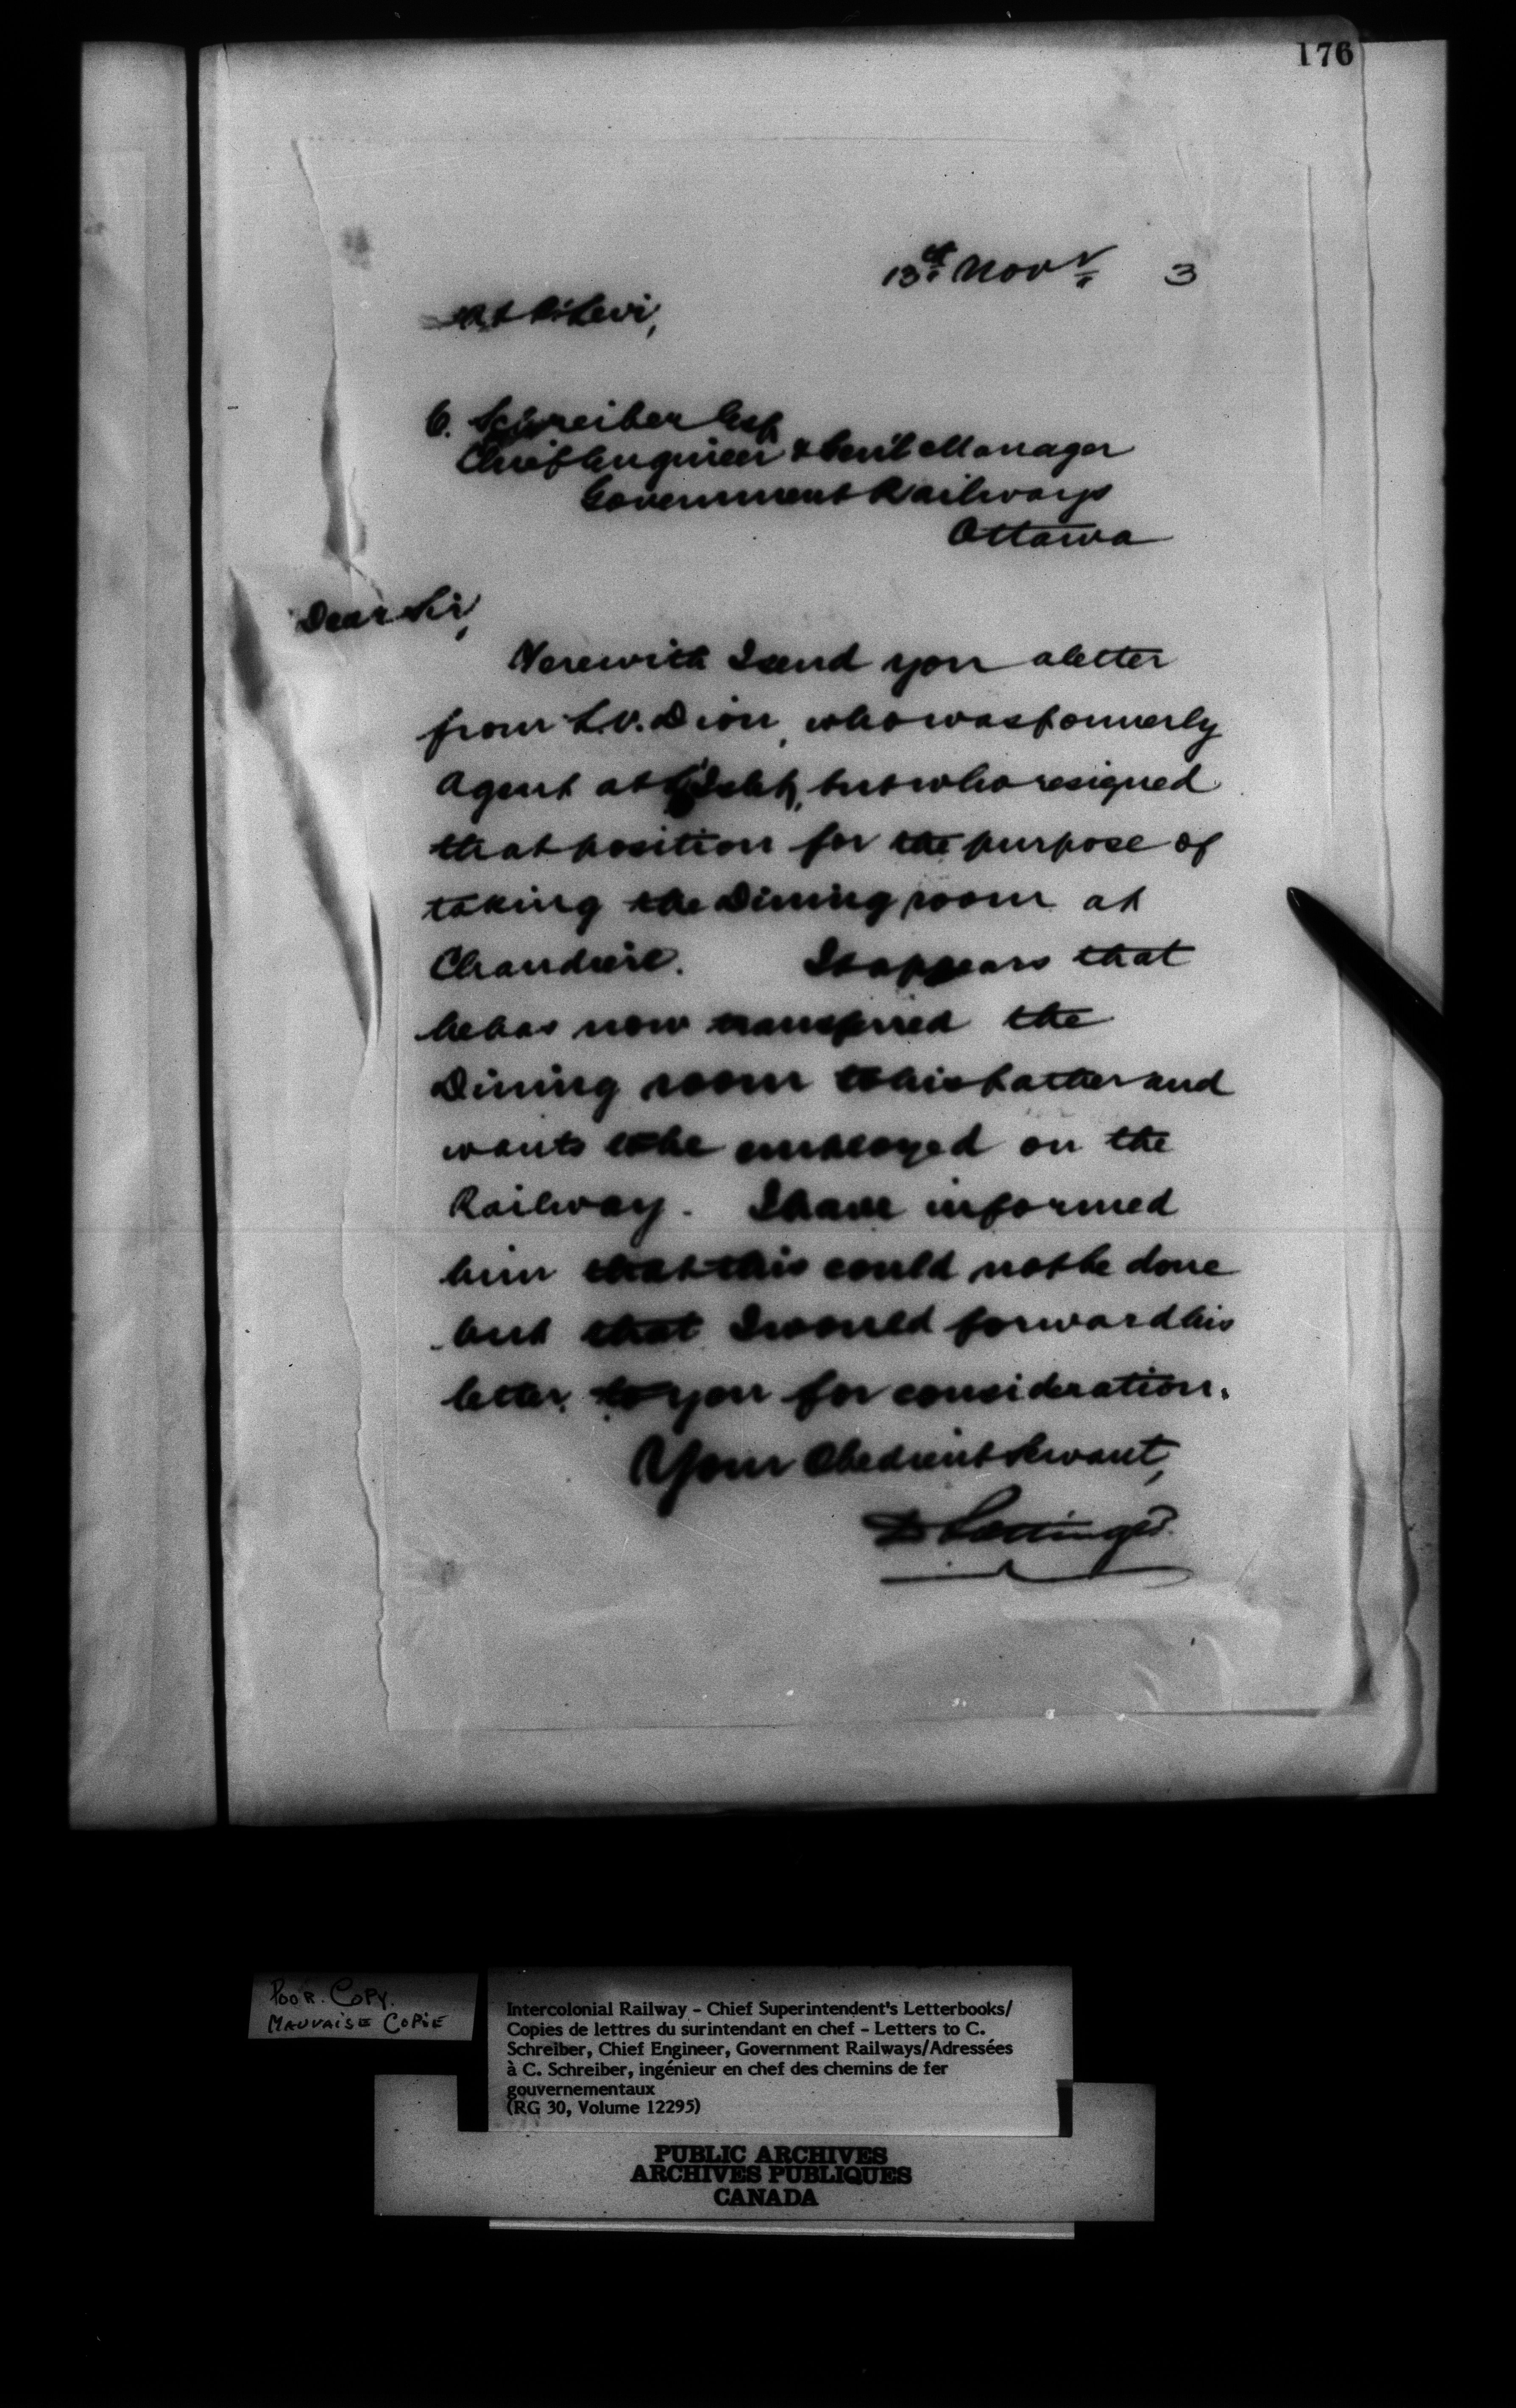 176
13th Novr 3
C. Schreiber Esq
Chief Engineer & Genl Manager
Government Railways
Ottawa
Dear Sir,
Herewith I send you a letter
from L.V. Dion, who was formerly
Agent at L'Islet, but who resigned
that position for the purpose of
taking the Dining room at
Chaudiere. It appears that
he has now transferred the
Dining room to his father and
wants to be employed on the
Railway. I have informed
him that this could not be done
but that I would forward his
letter to you for consideration.
Your Obedient Servant,
D Pottinger
POOR. COPY.
MAUVAISE COPIE
Intercolonial Railway - Chief Superintendent's Letterbooks/
Copies de lettres du surintendant en chef - Letters to C.
Schreiber, Chief Engineer, Government Railways/Adressées
à C. Schreiber, ingénieur en chef des chemins de fer
gouvernementaux
(RG 30, Volume 12295)
PUBLIC ARCHIVES
ARCHIVES PUBLIQUES
CANADA